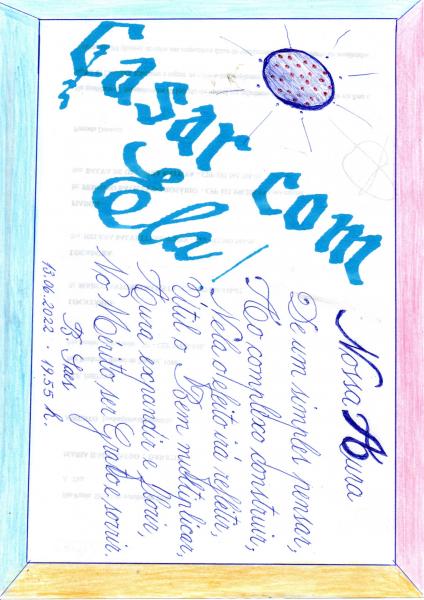 Casar com
Ela!
Nossa Aura
De um simples pensar,
Ao complexo construir,
Nela o efeito irá refletir,
Útil o Bem multiplicar,
Aura expandir e florir,
No Mérito ser Grato e sorrir.
B. Saes
13.06.2022 - 19.55 h.